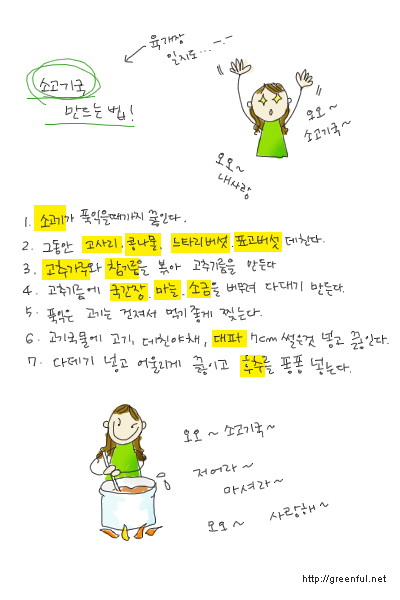 육개장
일지도...-.-
소고기국
만드는 법!
오오~
소고기국~
오오~
내사랑
1. 소고기가 푹익을때까지 끓인다.
2. 그동안 고사리, 콩나물, 느타리버섯, 표고버섯 데친다.
3. 고추가루와 참기름을 볶아 고추기름을 만든다
4. 고추기름에 국간장, 마늘, 소금을 버무려 다대기 만든다.
5. 푹익은 고기는 건져서 먹기좋게 찢는다.
6. 고기국물에 고기, 데친야채, 대파 7cm 썰은것 넣고 끓인다.
7. 다데기 넣고 어울리게 끓이고 후추를 퐁퐁 넣는다.
오오~ 소고기국~
저어라~
마셔라~
오오~ 사랑해~
http://greenful.net